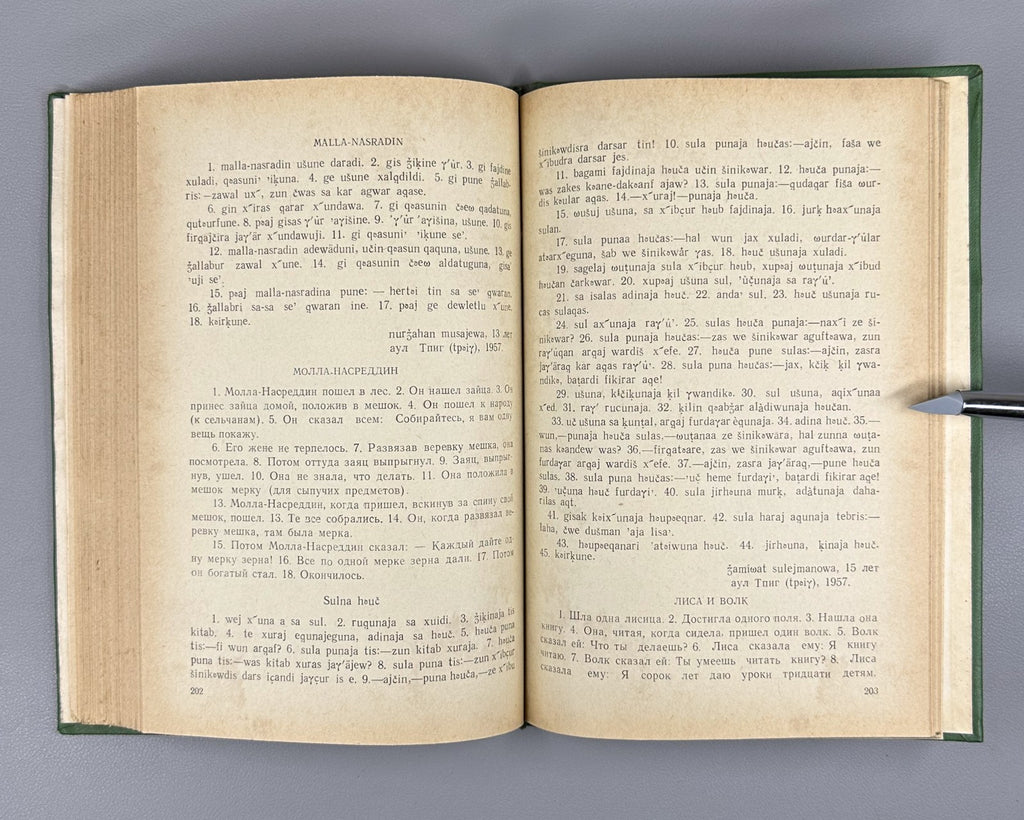 MALLA-NASRADIN
1. malla-nasradin ušune daradi. 2. gis ǯiḳine γ’úr. 3. gi fajdine
xuladi, qɷasuni’ ’iḳuna. 4. ge ušune xalqdildi. 5. gi pune ǯallab-
ris:—zawal ux˘, zun čwas sa kar agwar aqase.
6. gin x˘iras qarar x˘undawa. 7. gi qɷasunin čɷeɯ qadatuna,
qutɷurfune. 8. pɷaj gisas γ’úr ’aγišine. 9. ’γ’úr ’aγišina, ušune. 10. gis
firqajčira jaγ’ár x˘undawuji. 11. gi qɷasuni’ ’iḳune se’.
12. malla-nasradin adewäduni, učin-qɷasun qaquna, ušune. 13. ge
ǯallabur zawal x˘une. 14. gi qɷasunin čɷeɯ aldatuguna, gisa’
’uji se’.
15. pɷaj malla-nasradina pune: — hertɷi tin sa se’ qwaran.
16. ǯallabri sa-sa se’ qwaran ine. 17. pɷaj ge dewletlu x˘une.
18. kɷirḳune.
nurǯahan musajewa, 13 лет
аул Тпиг (tpɷiγ), 1957.
МОЛЛА-НАСРЕДДИН
1. Молла-Насреддин пошел в лес. 2. Он нашел зайца. 3. Он
принес зайца домой, положив в мешок. 4. Он пошел к народу
(к сельчанам). 5. Он сказал всем: Собирайтесь, я вам одну
вещь покажу.
6. Его жене не терпелось. 7. Развязав веревку мешка, она
посмотрела. 8. Потом оттуда заяц выпрыгнул. 9. Заяц, выпрыг-
нув, ушел. 10. Она не знала, что делать. 11. Она положила в
мешок мерку (для сыпучих предметов).
13. Молла-Насреддин, когда пришел, вскинув за спину свой
мешок, пошел. 13. Те все собрались. 14. Он, когда развязал ве-
ревку мешка, там была мерка.
15. Потом Молла-Насреддин сказал: — Каждый дайте од-
ну мерку зерна! 16. Все по одной мерке зерна дали. 17. Потом
он богатый стал. 18. Окончилось.
Sulna hɷuč
1. wej x˘una a sa sul. 2. ruqunaja sa xuidi. 3. ǯiḳinaja tis
kitab. 4. te xuraj equnajeguna, adinaja sa hɷuč. 5. hɷuča puna
tis:—fi wun arqaf? 6. sula punaja tis:—zun kitab xuraja. 7. hɷuča
puna tis:—was kitab xuras jaγ’äjew? 8. sula puna tis:—zun x˘ibçur
šinikɷwdis dars içandi jaγçur is e. 9.—ajčin,—puna hɷuča,—ze x˘ibu
202
šinikɷwdisra darsar tin! 10. sula punaja hɷučas:—ajčin, faša we
x˘ibudra darsar jes.
11. bagami fajdinaja hɷuča učin šinikɷwar. 12. hɷuča punaja:—
was zakes kɷane-dakɷanf ajaw? 13. sula punaja:—qudaqar fiša ɯur-
dis kɷular aqas. 14.—x˘uraj!—punaja hɷuča.
15. ɯušuj ušuna, sa x˘ibçur hɷub fajdinaja. 16. jurḳ hɷax˘unaja
sulan.
17. sula punaa hɷučas:—hal wun jax xuladi, ɯurdar-γ’úlar
atɷarx˘eguna, šab we šinikɷwár γas. 18. hɷuč ušunaja xuladi.
19. sagelaj ɯuṭunaja sula x˘ibçur hɷub, xupɷaj ɯuṭunaja x˘ibud
hɷučan čarkɷwar. 20. xupɷaj ušuna sul, ’ùčunaja sa raγ’ú’.
21. sa isalas adinaja hɷuč. 22. anda’ sul. 23. hɷuč ušunaja ru-
cas sulaqas.
24. sul ax˘unaja raγ’ú’. 25. sulas hɷuča punaja:—nax˘i ze ši-
nikɷwar? 26. sula punaja hɷučas:—zas we šinikɷwar aguftɷawa, zun
raγ’úqan arqaj wardiš x˘efe. 27. hɷuča pune sulas:—ajčin, zasra
jaγ’äraq kar aqas raγ’ú’. 28. sula puna hɷučas:—jax, kčiḳ ḳil γwa-
ndikɷ, baṭardi fikirar aqe!
29. ušuna, kčiḳunaja ḳil γwandikɷ. 30. sul ušuna, aqix˘unaa
x˘ed. 31. raγ’ rucunaja. 32. ḳilin qɷabǯar alàdiwunaja hɷučan.
33. uč ušuna sa ḳunṭal, arqaj furdaγar èqunaja. 34. adina hɷuč. 35.—
wun,—punaja hɷuča sulas,—ɯuṭanaa ze šinikɷwára, hal zunna ɯuṭa-
nas kɷandew was? 36.—firqatɷare, zas we šinikɷwar aguftɷawa, zun
furdaγar arqaj wardiš x˘efe. 37.—ajčin, zasra jaγ’äraq,—pune hɷuča
sulas. 38. sula puna hɷučas:—’uč heme furdaγi’, baṭardi fikirar aqe!
39. ’učuna hɷuč furdaγi’. 40. sula jirhɷuna murḳ, adàtunaja daha-
rilas aqt.
41. gisak kɷix˘unaja hɷupɷeqnar. 42. sula haraj aqunaja tebris:—
laha, čwe dušman ’aja lisa’.
43. hɷupɷeqanari ’atɷiwuna hɷuč. 44. jirhɷuna, ḳinaja hɷuč.
45. kɷirḳune.
ǯamiɯat sulejmanowa, 15 лет
аул Тпиг (tpɷiγ), 1957.
ЛИСА И ВОЛК
1. Шла одна лисица. 2. Достигла одного поля. 3. Нашла она
книгу. 4. Она, читая, когда сидела, пришел один волк. 5. Волк
сказал ей: Что ты делаешь? 6. Лиса сказала ему: Я книгу
читаю. 7. Волк сказал ей: Ты умеешь читать книгу? 8. Лиса
сказала ему: Я сорок лет даю уроки тридцати детям.
203